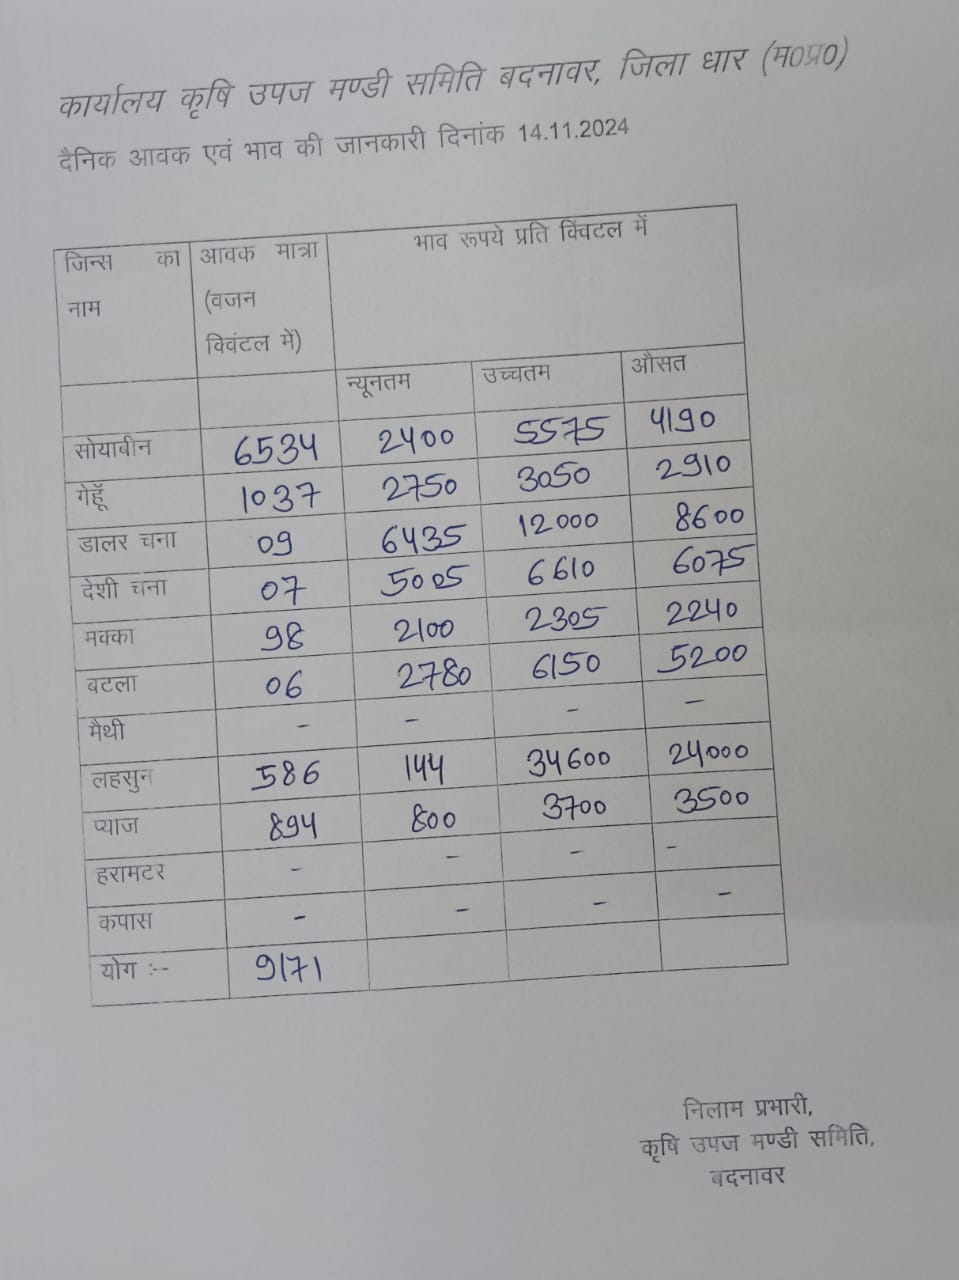 कार्यालय कृषि उपज मण्डी समिति बदनावर, जिला धार (म0प्र0)
दैनिक आवक एवं भाव की जानकारी दिनांक 14.11.2024
जिन्स का नाम आवक मात्रा (वजन क्विंटल में) भाव रूपये प्रति क्विंटल में
न्यूनतम उच्चतम औसत
सोयाबीन 6534 2400 5575 4190
गेहूँ 1037 2750 3050 2910
डालर चना 09 6435 12000 8600
देशी चना 07 5005 6610 6075
मक्का 98 2100 2305 2240
बटला 06 2780 6150 5200
मैथी - - - -
लहसुन 586 144 34600 24000
प्याज 894 800 3700 3500
हरामटर - - - -
कपास - - - -
योग :-- 9171
निलाम प्रभारी,
कृषि उपज मण्डी समिति,
बदनावर